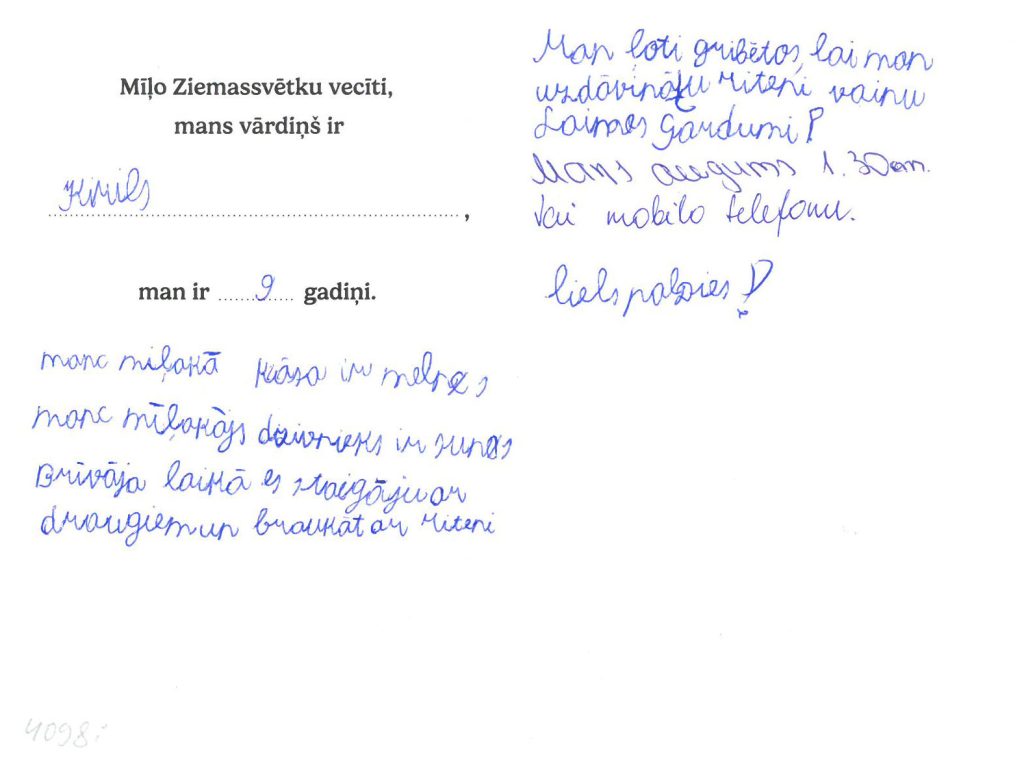 Mīļo Ziemassvētku vecīti,
mans vārdiņš ir
Kirils,
man ir 9 gadiņi.
manc miļakā kāsa ir melnes
manc mīļakājs dzivnieks ir sunes
Brīvāja laikā es staigāju ar
draugiem un braukāt ar riteni
Man ļoti gribētos, lai man
uzdāvinātu riteni vainu
Laimas Gārdumi!
Mans augums 1.30cm.
vai mobilo telefonu.
liels paldies!
4098